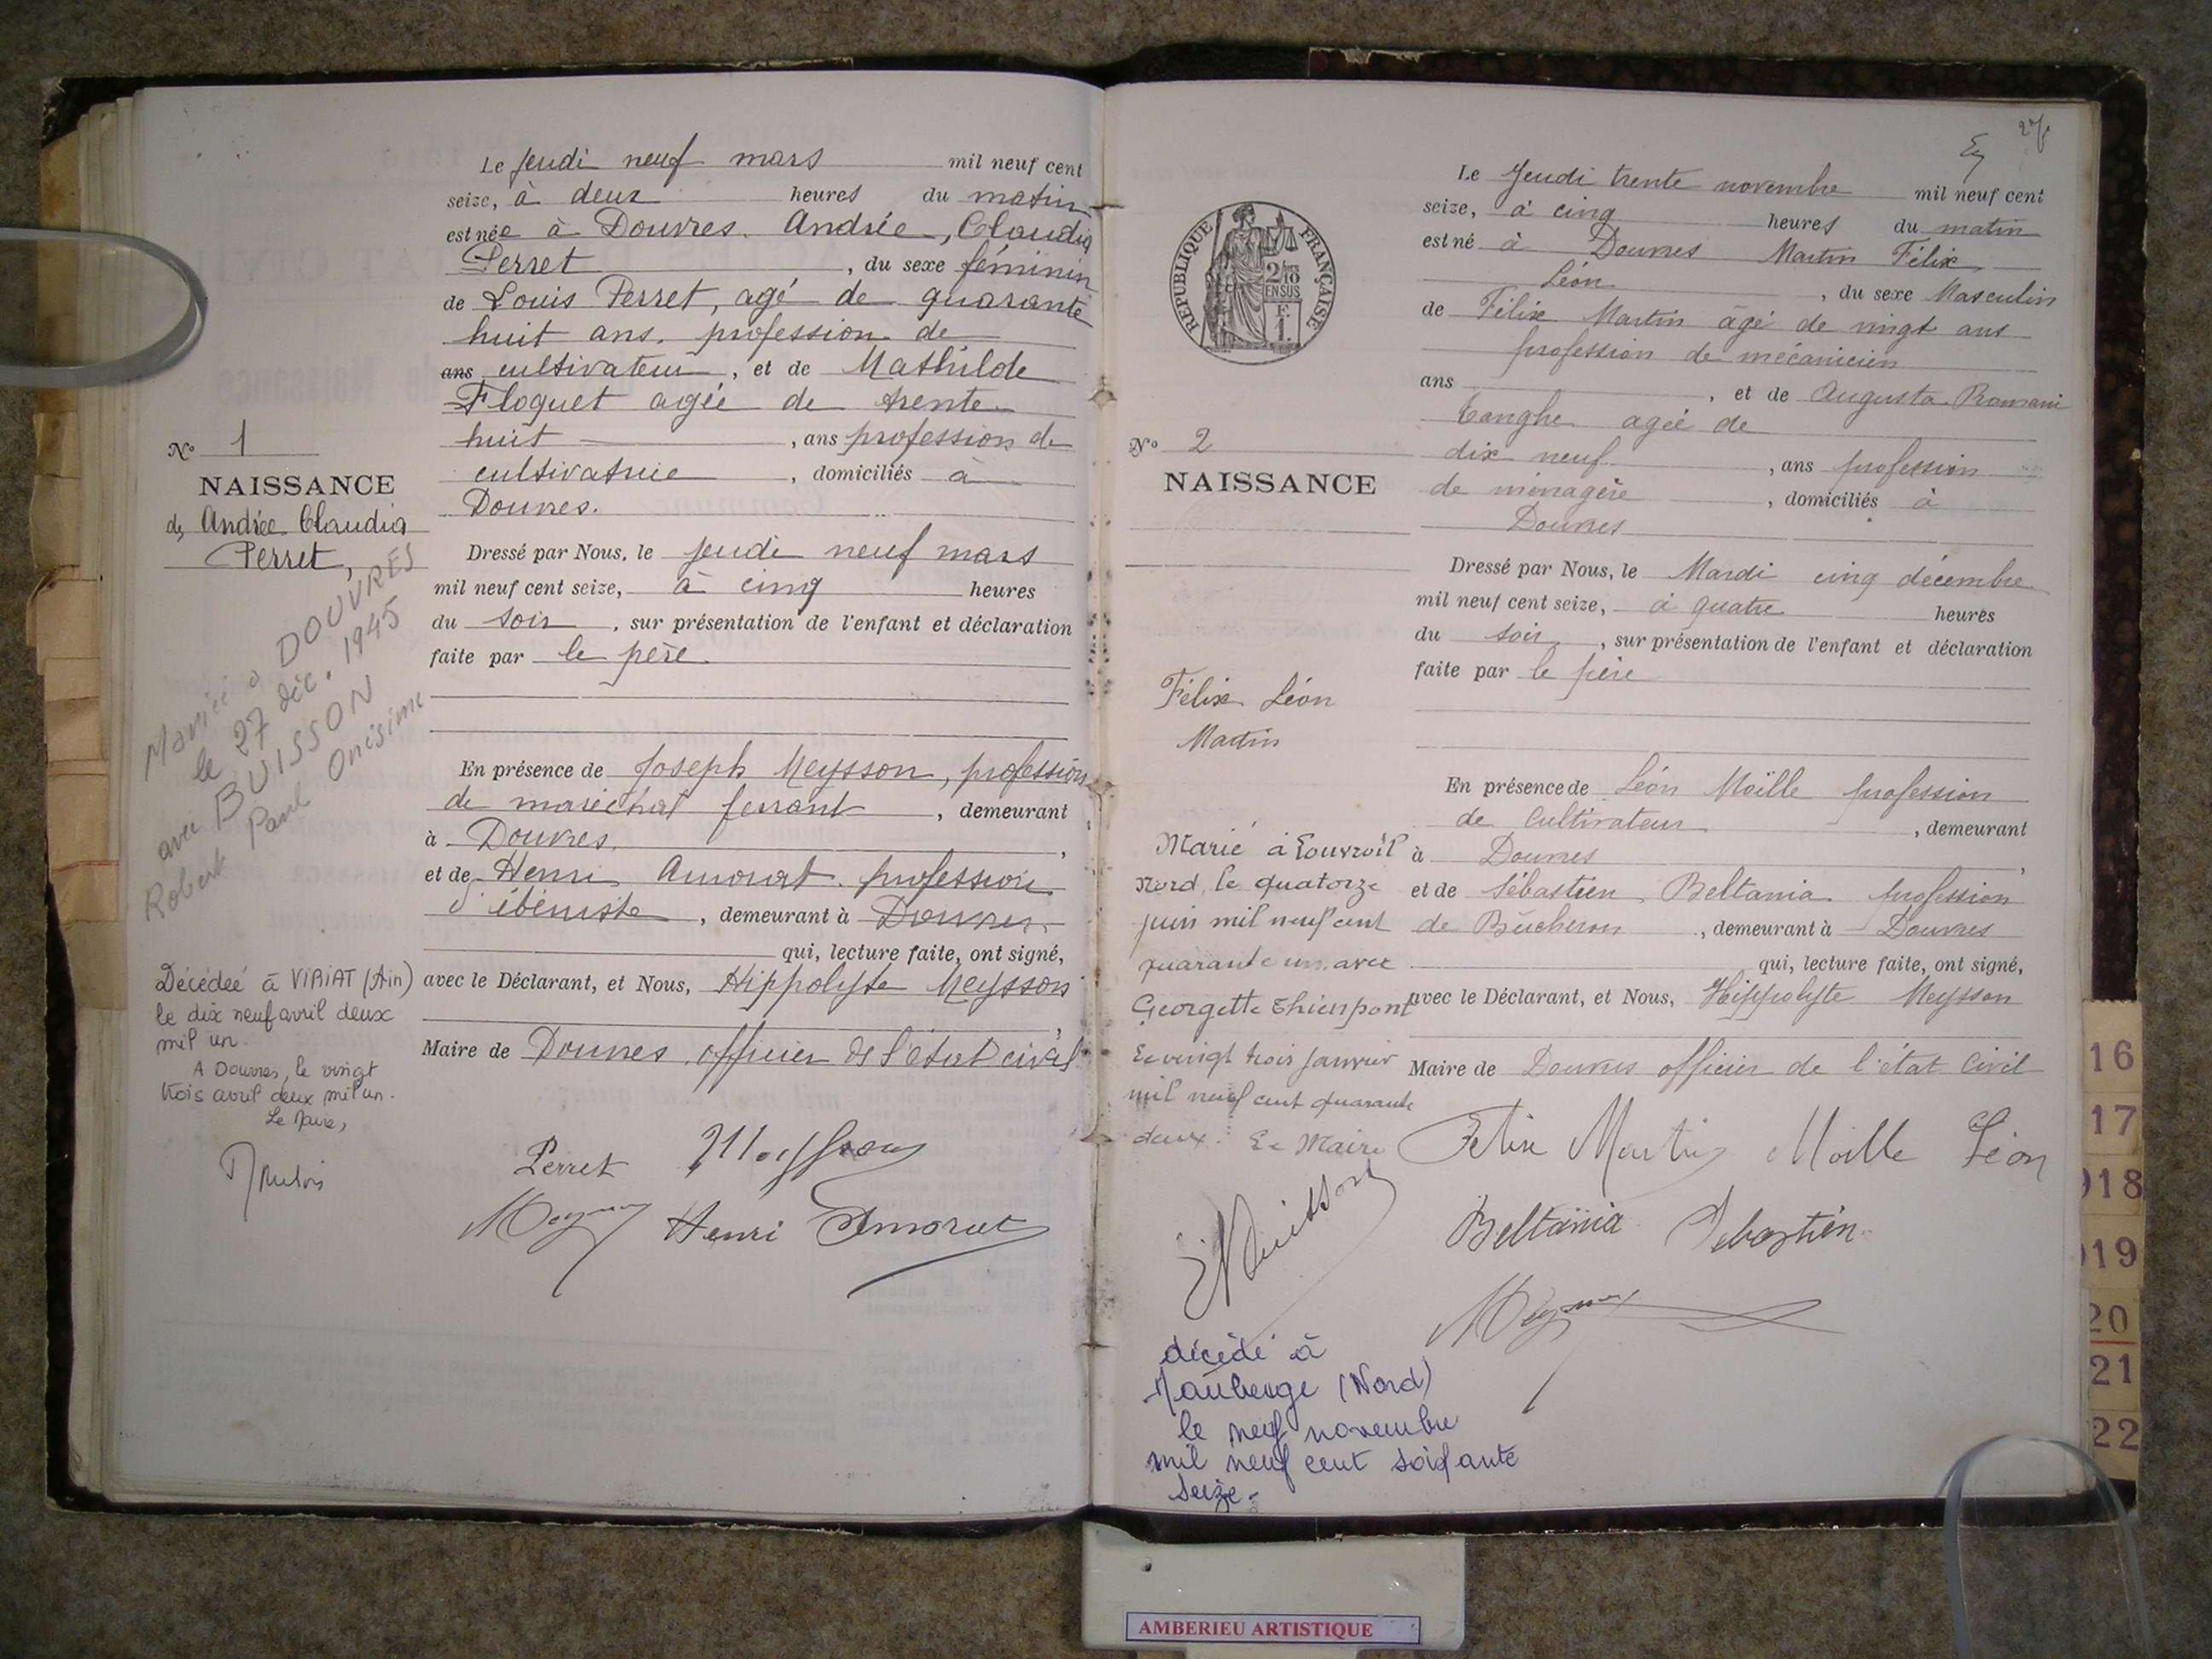 Le Jeudi neuf mars mil neuf cent
seize, à deux heures du matin
est née à Douvres. Andrée, Claudia
Perret, du sexe féminin
de Louis Perret, agé de quarante
huit ans. profession de
ans cultivateur, et de Mathilde
Floquet agée de trente
huit, ans profession de
cultivatrice, domiciliés à
Douvres.
Dressé par Nous, le jeudi neuf mars
mil neuf cent seize, à cinq heures
du soir, sur présentation de l'enfant et déclaration
faite par le père
En présence de Joseph Meysson, profession
de maréchal ferrant, demeurant
à Douvres,
et de Henri Amorat profession
d'ébéniste, demeurant à Douvres
qui, lecture faite, ont signé,
avec le Déclarant, et Nous, Hippolyte Meysson
,
Maire de Douvres officier de l'état civil
Perret
Henri
N° 1
NAISSANCE
de Andrée Claudia
Perret,
Mariée à DOUVRES
le 27 déc. 1945
avec BUISSON
Robert Paul Onésime
Décédée à VIRIAT (Ain)
le dix neuf avril deux
mil un.
A Douvres, le vingt
trois avril deux mil un.
Le Maire,
Le Jeudi trente novembre mil neuf cent
seize, à cinq heures du matin
est né à Douvres Martin Félix
Léon, du sexe Masculin
de Félix Martin âgé de vingt ans
profession de mécanicien
ans, et de Augusta Romani
Canghe agée de
dix neuf, ans profession
de ménagère, domiciliés à
Douvres
Dressé par Nous, le Mardi cinq décembre
mil neuf cent seize, à quatre heures
du soir, sur présentation de l'enfant et déclaration
faite par le père
En présence de Léon Moïlle profession
de Cultivateur, demeurant
à Douvres,
et de Sébastien Beltania profession
de Bûcheron, demeurant à Douvres
qui, lecture faite, ont signé,
avec le Déclarant, et Nous, Hippolyte Meysson
Maire de Douvres officier de l'état Civil
Félix Martin Moille Léon
Beltania Sébastien
RÉPUBLIQUE FRANÇAISE
2/10
EN SUS
F.
1.
N° 2
NAISSANCE
Félix Léon
Martin
Marié à Louvroil
Nord, le quatorze
juin mil neuf cent
quarante un, avec
Georgette Thienpont
Le vingt trois janvier
mil neuf cent quarante
deux. Le Maire
décédé à
Maubeuge (Nord)
le neuf novembre
mil neuf cent soixante
seize.
16
17
918
919
20
21
22
AMBERIEU ARTISTIQUE